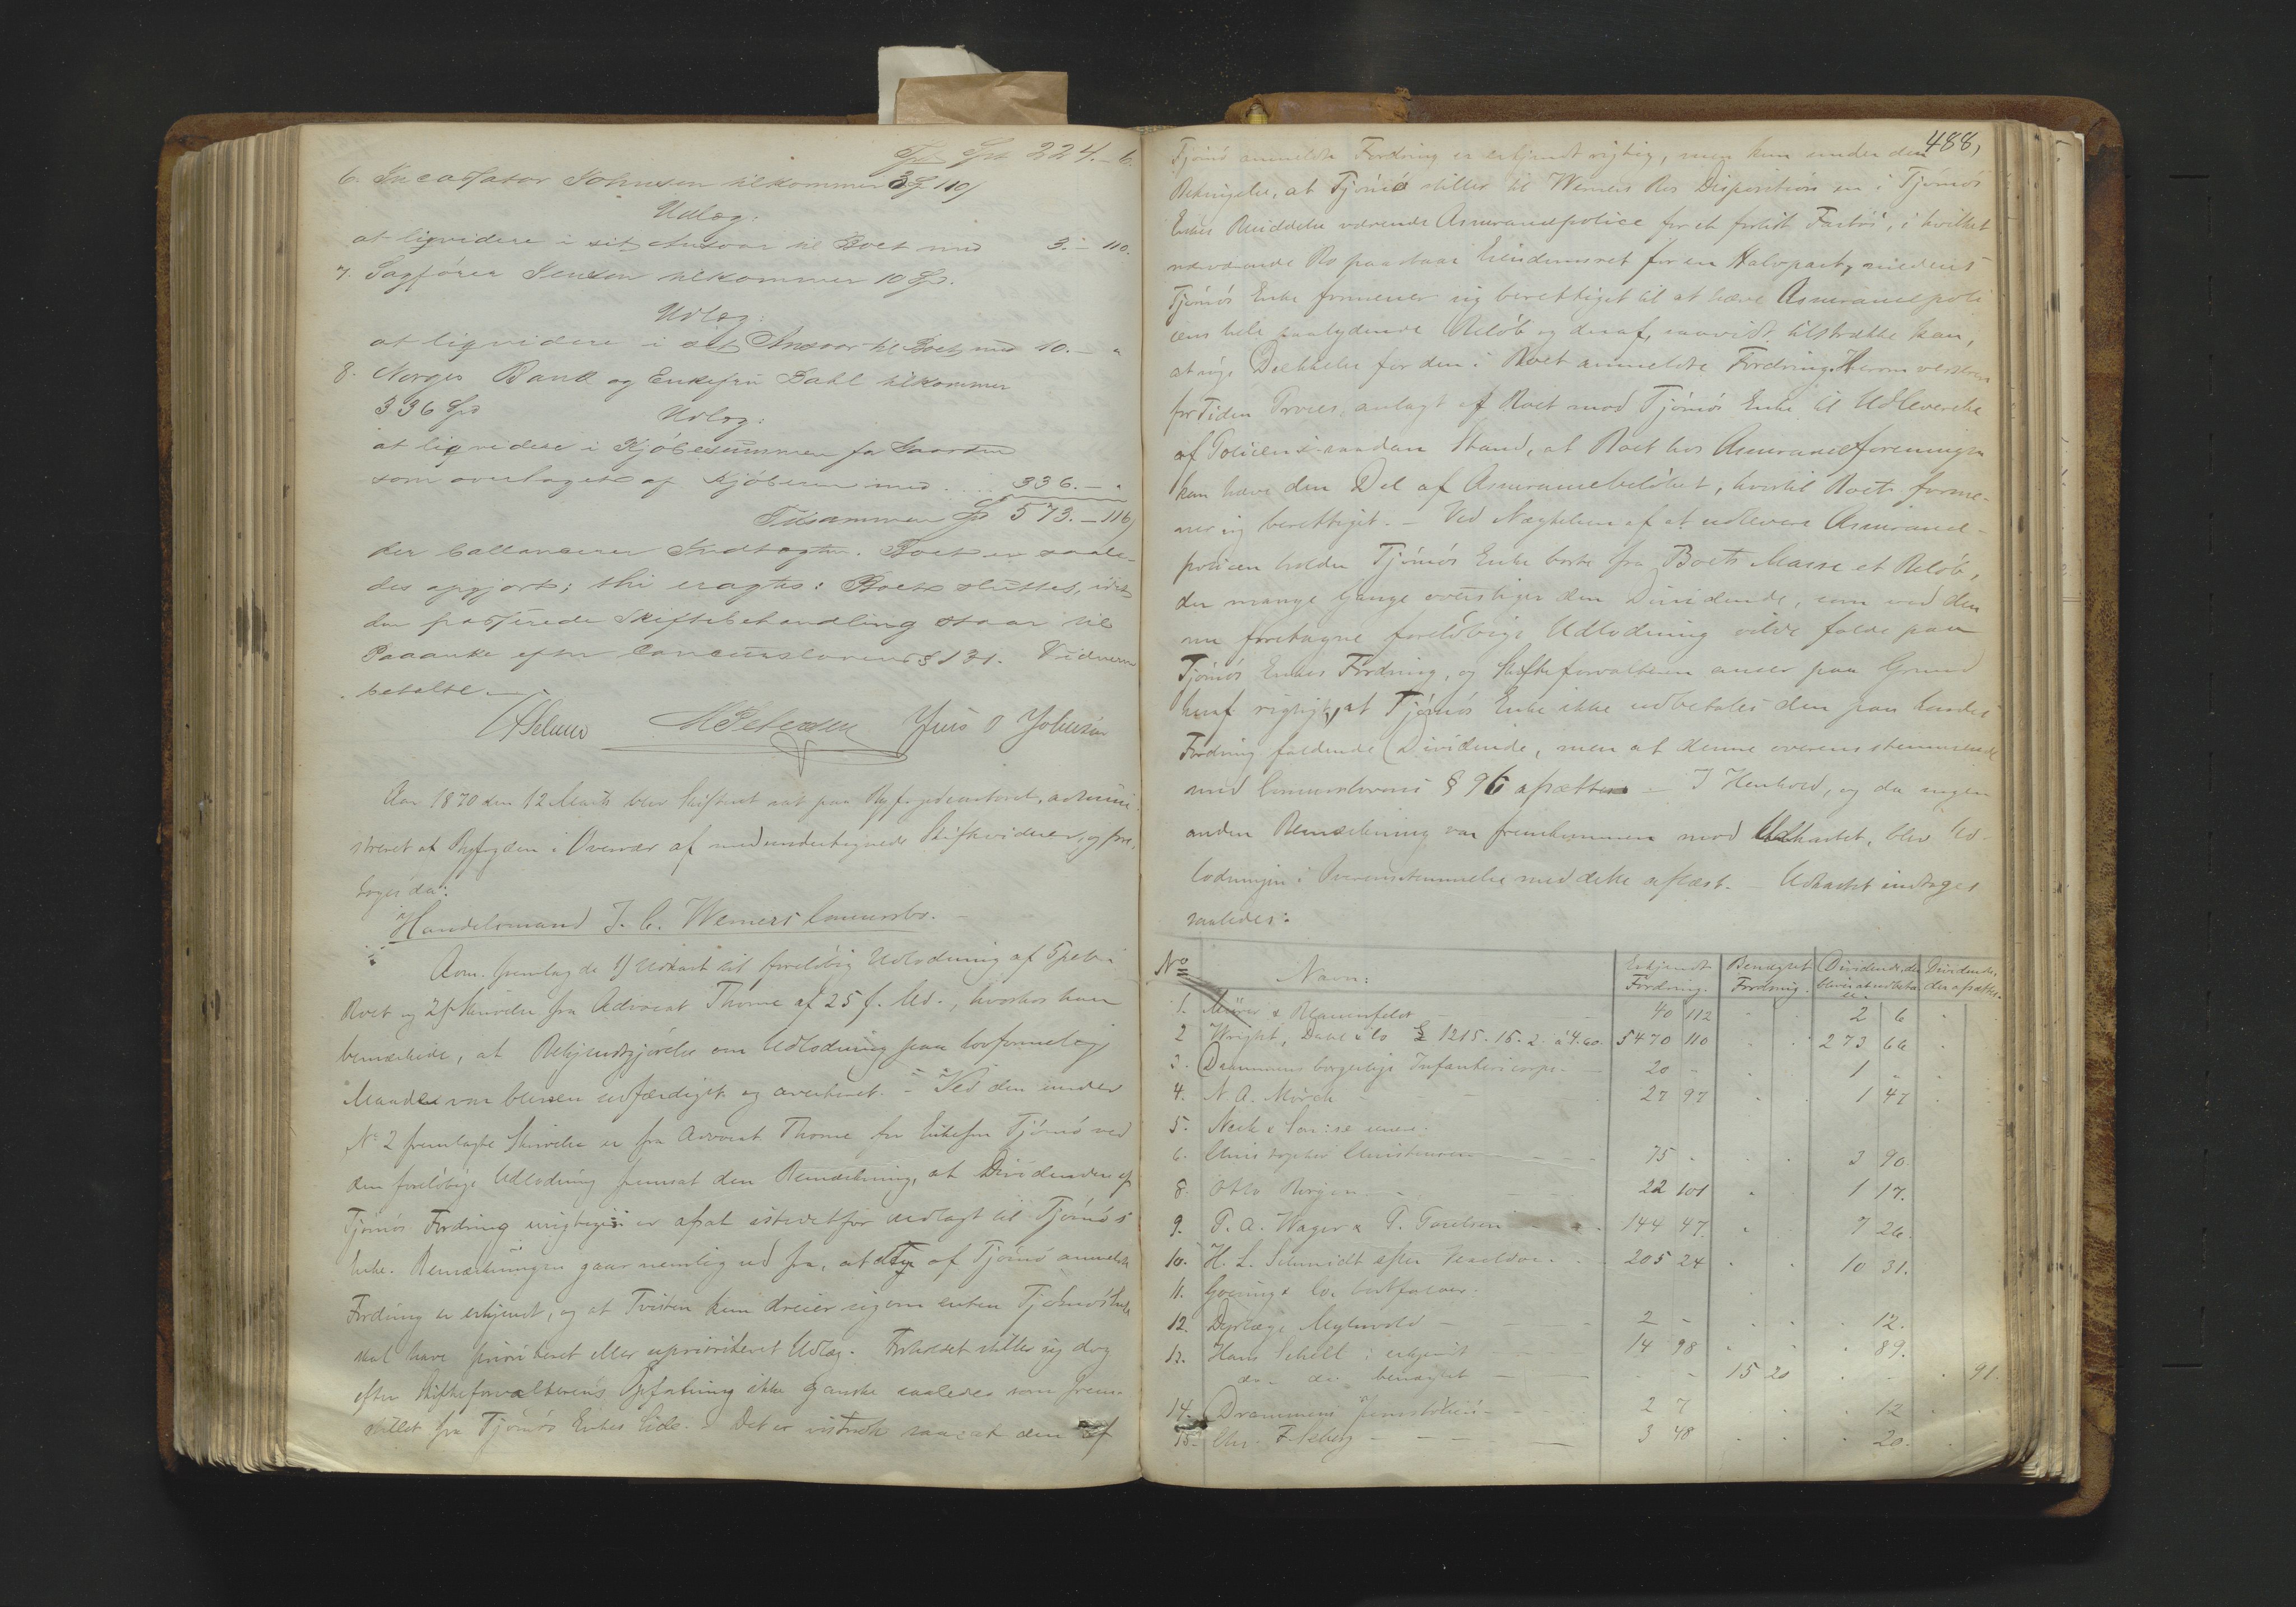 Tpt Spd 224.–6.
6. Incassator Johnsen tilkommer 3 Sp 110 /
Udlæg:
at liqvidere i sit Ansvar til Boet med 3.– 110.
7. Sagfører Jensen tilkommer 10 Spd.
Udlæg:
at liqvidere i sit Ansvar til Boet med 10. – "
8. Norges Bank og Enkefru Dahl tilkommer
336 Spd Udlæg:
at liqvidere i Kjøbesummen for Gaarden
som overtaget af Kjøberen med . . . 336. – "
Tilsammen Sp 573. – 116/
der ballancerer Indtægten. Boet er saale-
des opgjort; thi eragtes: Boet sluttet, idet
den passerede Skiftebehandling staar til
Paaanke efter Concurslovens § 131. Vidnerne
betalte. –
M Petersen Jens O Johnsen
Aar 1870 den 12 Marts blev Skifteret sat paa Byfogedcontoret, admini-
streret af Byfogden i Overvær af medundertegnede Skiftevidner, og fore-
toges da:
Handelsmand J. C. Werners Concursbo. –
Adm. fremlagde 1) Udkast til foreløbig Udlodning af 5 pct i
Boet og 2) Skrivelse fra Advocat Thorne af 25 f. Md., hvorhos han
bemærkede, at Bekjendtgjørelse om Udlodning paa lovformelig
Maade var bleven udfærdiget og averteret. – Ved den under
No 2 fremlagte Skrivelse er fra Advocat Thorne for Enkefru Tjømø ved
den foreløbige Udlodning fremsat den Bemærkning, at Dividenden af
Tjømøs Fordring urigtigen er afsat istedetfor udlagt til Tjømøs
Enke. Bemærkningen gaar nemlig ud fra, at den af Tjømø anmeldte
Fordring er erkjendt, og at Tvisten kun dreier sig om enten Tjømøs Enke
skal have prioriteret eller uprioriteret Udlæg. Forholdet stiller sig dog
efter Skifteforvalterens Opfatning ikke ganske saaledes som frem-
stillet fra Tjømøs Enkes Side. Det er vistnok saa at den af
488,
Tjømø anmeldte Fordring er erkjendt rigtig, men kun under den
Betingelse, at Tjømø stiller til Werners Bos Disposition en i Tjømøs
Enkes Besiddelse værende Assurancepolice for et forlist Fartøi, i hvilket
nærværende Bo paastaar Eiendomsret for en Halvpart, medens
Tjømøs Enke formener sig berettiget til at hæve Assurancepoli-
cens hele paalydende Beløb og deraf, saavidt tilstrække kan,
at søge Dækkelse for den i Boet anmeldte Fordring. Herom verserer
for Tiden Proces, anlagt af Boet mod Tjømøs Enke til Udleverelse
af Policen i saadan Stand, at Boet hos Assuranceforeningen
kan hæve den Del af Assurancebeløbet, hvortil Boet forme-
ner sig berettiget. – Ved Nægtelsen af at udlevere Assurance-
policen holder Tjømøs Enke borte fra Boets Masse et Beløb,
der mange Gange overstiger den Dividende, som ved den
nu foretagne foreløbige Udlodning vilde falde paa
Tjømøs Enkes Fordring, og Skifteforvalteren anser paa Grund
heraf rigtigst, at Tjømøs Enke ikke udbetales den paa hendes
Fordring faldende Dividende, men at denne overensstemmende
med Concurslovens § 96 afsættes – I Henhold, og da ingen
anden Bemærkning var fremkommen mod Udkastet, blev Ud-
lodningen i Overensstemmelse med dette aflæst. – Udkastet indtages
saaledes:
No Navn: Erkjendt Fordring. Benægtet Fordring. Dividende, der bliver at udbetales. Dividende, der afsættes.
1. & Blauenfeldt 40 112 2 6
2 Wright, Dahl & Co £ 1215. 15. 2 à 4.60. 5470 110 273 66
3. Drammens borgerlige Infantericorps 20 – 1 –
4. N. A. Mørch 27 97 1 47
5. Neck & Con: se
6. Christopher Christensen 75 – 3 90.
8. Otto Borgen 22 101 1 17.
9. P. A. Wager & P. Paulsen 144 47. 7 26.
10. H. L. Schmidt efter 205 24 10 31.
11. Goering & Co. bortfalder.
12. Dyrlæge Myhrvold 2 – 12.
13. Hans Schell: erkjendt 14 98 89.
do – do benægtet 15 20 91.
14. Drammens 2 7 12
15. Chr. F. 3 48 20.